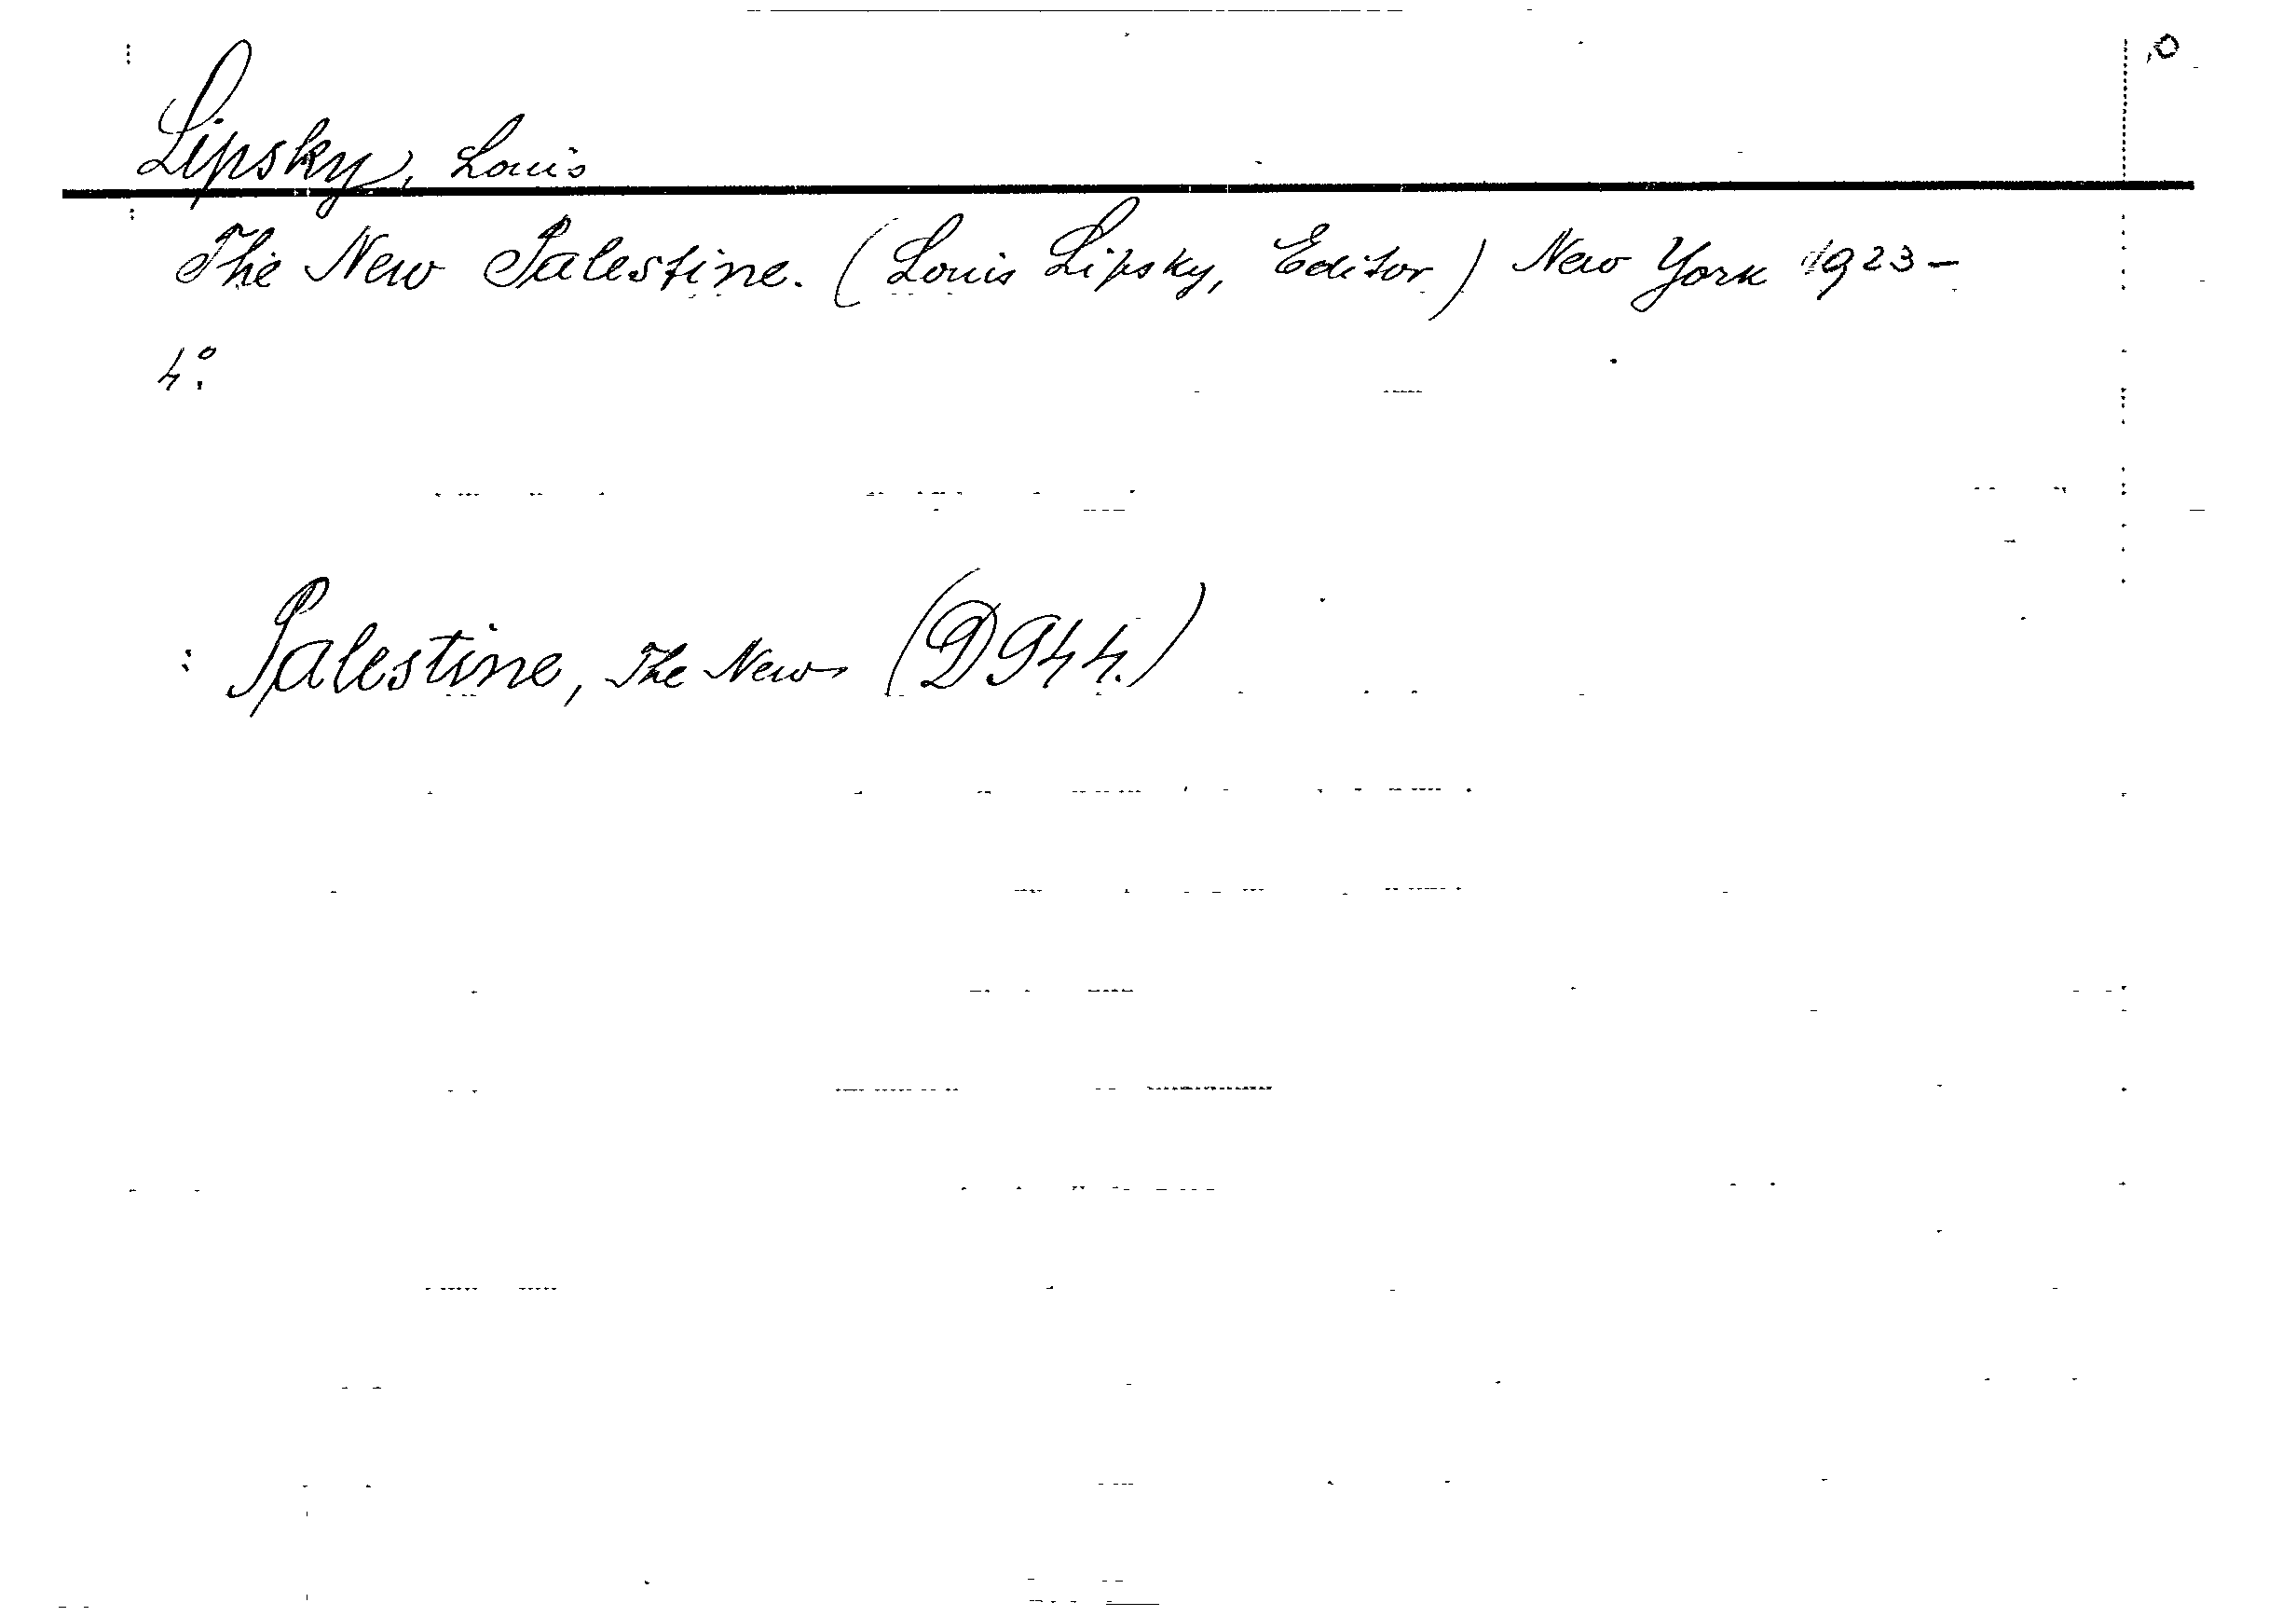 Lipsky, Louis
The New Palestine. (Louis Lipsky, Editor) New York 1923-
4°.
: Palestine, The New (D944.)